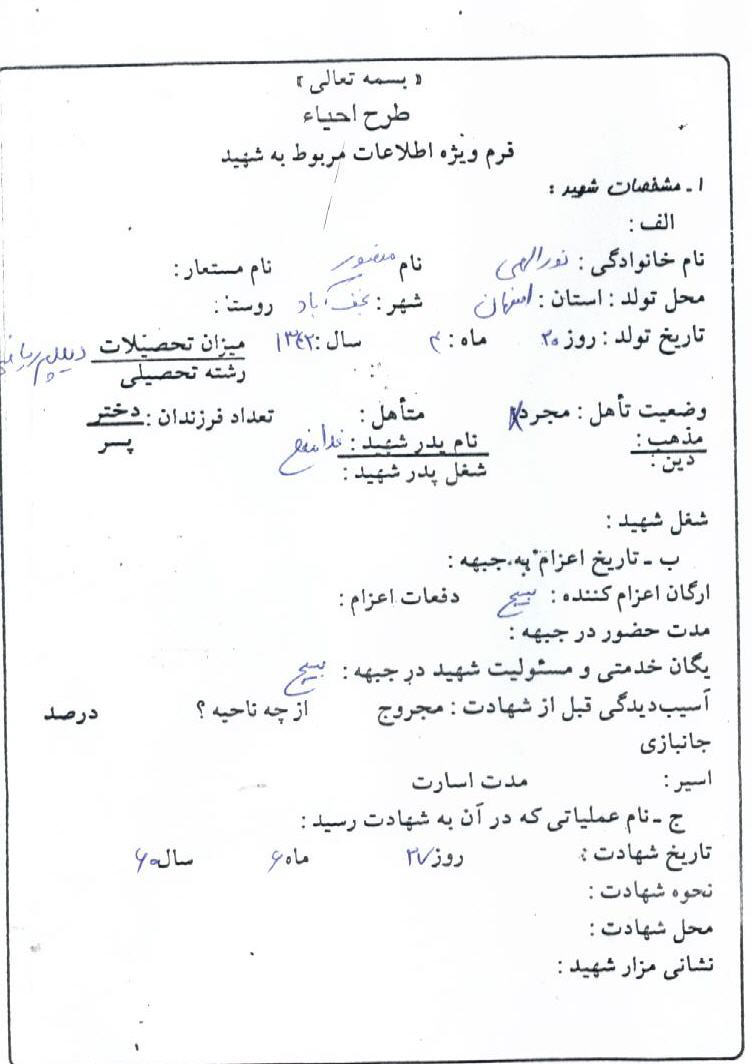 « بسمه تعالی »
طرح احیاء
فرم ویژه اطلاعات مربوط به شهید
۱ ـ مشخصات شهید :
الف :
نام خانوادگی : نورالهی نام منصور نام مستعار :
محل تولد : استان : اصفهان شهر : نجف آباد روستا :
تاریخ تولد : روز ۲۰ ماه : ۴ سال : ۱۳۴۲ میزان تحصیلات دیپلم
رشته تحصیلی
وضعیت تأهل : مجرد X متأهل : تعداد فرزندان : دختر
پسر
مذهب : نام پدر شهید :
دین : شغل پدر شهید :
شغل شهید :
ب ـ تاریخ اعزام به جبهه :
ارگان اعزام کننده : بسیج دفعات اعزام :
مدت حضور در جبهه :
یگان خدمتی و مسئولیت شهید در جبهه : بسیج
آسیب‌دیدگی قبل از شهادت : مجروح از چه ناحیه ؟ درصد
جانبازی
اسیر : مدت اسارت
ج ـ نام عملیاتی که در آن به شهادت رسید :
تاریخ شهادت : روز ۲۷ ماه ۶ سال ۶۰
نحوه شهادت :
محل شهادت :
نشانی مزار شهید :